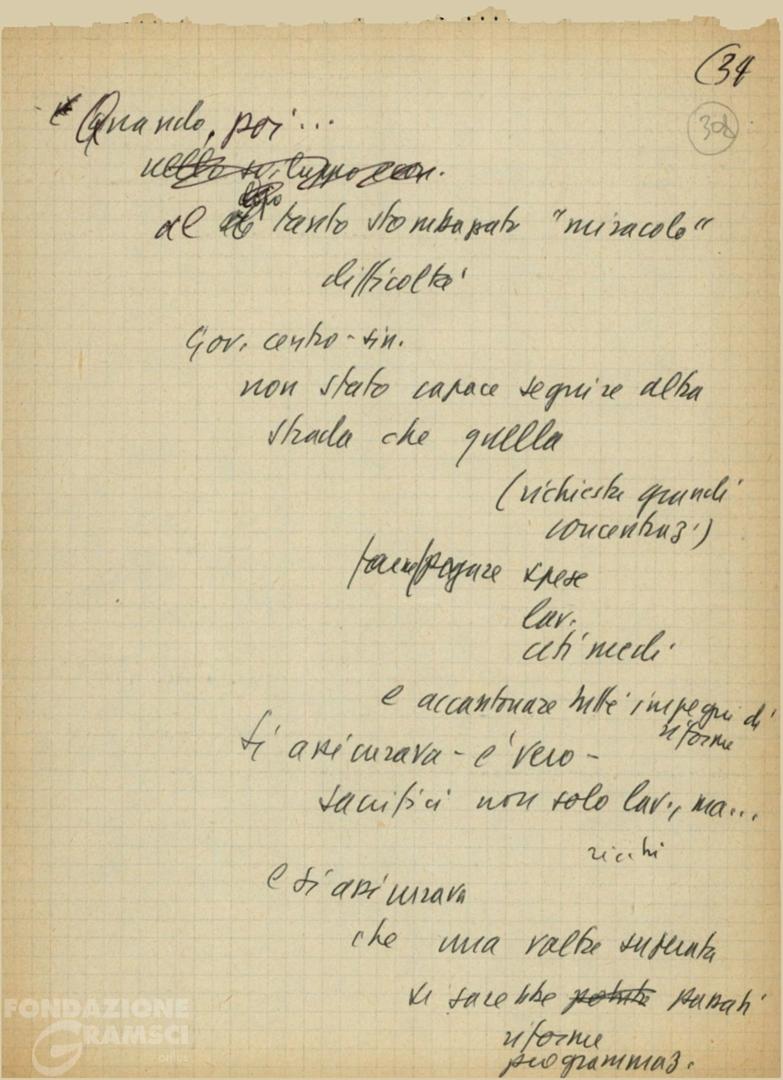 (34
308
Quando, poi...
nello sviluppo econ.
al dopo tanto strombazzato "miracolo"
difficoltà
Gov. centro-sin.
non stato capace seguire altra
strada che quella
(richiesta grandi
concentraz.)
far pagare spese
lav.
ceti medi
e accantonare tutti impegni di
riforme
Si assicurava - è vero -
sacrifici non solo lav., ma...
ricchi
e si assicurava
che una volta superata
si sarebbe potuto passati
riforme
programmaz.
FONDAZIONE
GRAMSCI